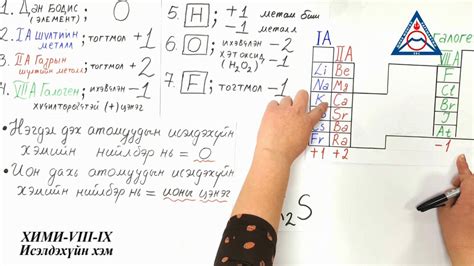 1. Дан бодис; 0
(элемент)
2. IA шүлтийн металл; тогтмол +1
3. IIA Газрын шүлтийн металл; тогтмол +2
4. VIIA Галоген; ихэвчлэн -1
хүчилтөрөгчтэй (+) цэнэг
5. H; +1 металл биш
-1 металл
6. O; ихэвчлэн -2
хэт оксид -1
(H₂O₂)
7. F; тогтмол -1
• Нэгдэл дэх атомуудын исэлдэхүйн
хэмийн нийлбэр нь = 0
• Ион дахь атомуудын исэлдэхүйн
хэмийн нийлбэр нь = ионы цэнэг
IA
IIA
Li Be
Na Mg
K Ca
Sr
Cs Ba
Fr Ra
+1 +2
Галоген
VIIA
F
Cl
Br
I
At
-1
₂S
ХИМИ-VIII-IX
Исэлдэхүйн хэм